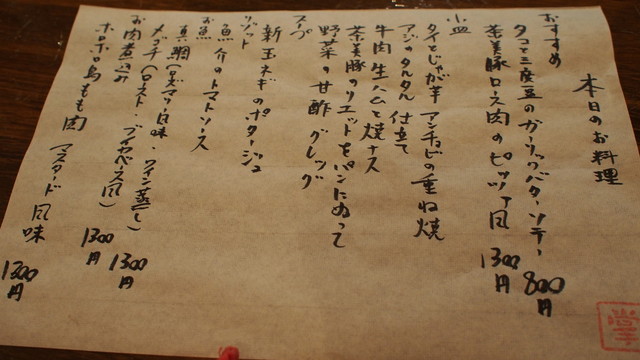 本日のお料理
おすすめ
タコと三度豆のガーリックバターソテー 800円
茶美豚ロース肉のピッツァ風 1300円
小皿
タイとじゃが芋 アンチョビの重ね焼
アジのタルタル仕立て
牛肉生ハムと焼ナス
茶美豚のリエットをパンにぬって
野菜の甘酢グレッグ
スープ
新玉ネギのポタージュ
リゾット
魚介のトマトソース
お魚
真鯛(ローズマリー風味・ワイン蒸し) 1300円
メゴチ(ロースト・ブイヤベース風) 1300円
お肉煮込み
ホロホロ鳥もも肉 マスタード風味 1300円